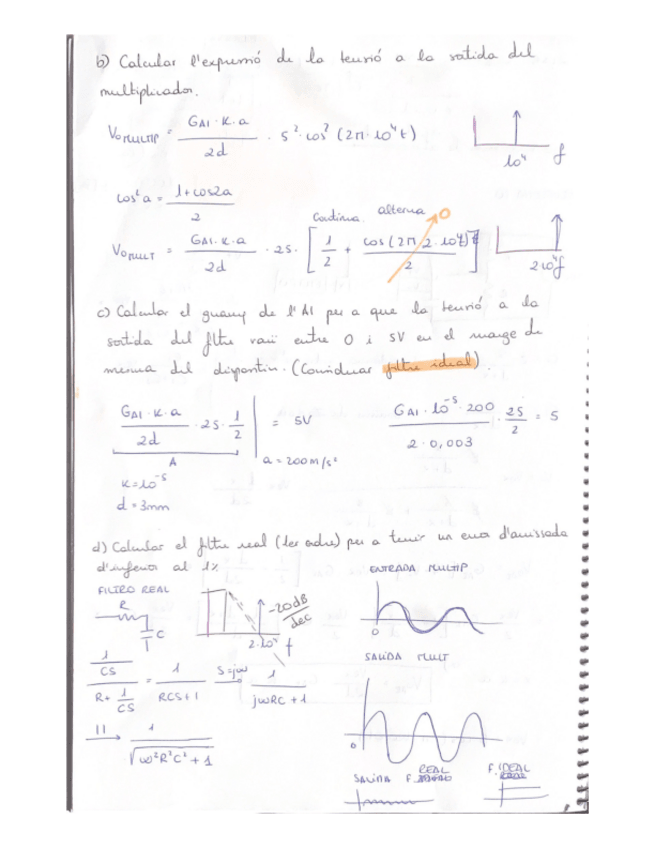 b) Calcular l'expressió de la tensió a la sortida del
multiplicador.
VoMULTIP = GAI · K · a / 2d · 5² · cos² (2π · 10⁴ t)
10⁴ f
cos² a = 1 + cos2a / 2
Continua alterna 0
VoMULT = GAI · K · a / 2d · 25 · [ 1/2 + cos (2π 2 · 10⁴ t) / 2 ]
2·10⁴ f
c) Calcular el guany de l'AI per a que la tensió a la
sortida del filtre vaïi entre 0 i 5V en el marge de
mesura del dispositiu. (Considerar filtre ideal).
GAI · K · a / 2d · 25 · 1/2 | = 5V
GAI · 10⁻⁵ · 200 / 2 · 0,003 · 25/2 = 5
A
a = 200 m/s²
K = 10⁻⁵
d = 3mm
d) Calcular el filtre real (1er ordre) per a tenir un error d'arrissada
d'inferior al 1%
FILTRO REAL
R
C
-20dB/dec
2·10⁴ f
ENTRADA MULTIP
0
SALIDA MULT
0
1/CS / R + 1/CS = 1 / RCS + 1 S=jω 1 / jωRC + 1
|| → 1 / √ω²R²C² + 1
SALIDA F. REAL
F. IDEAL